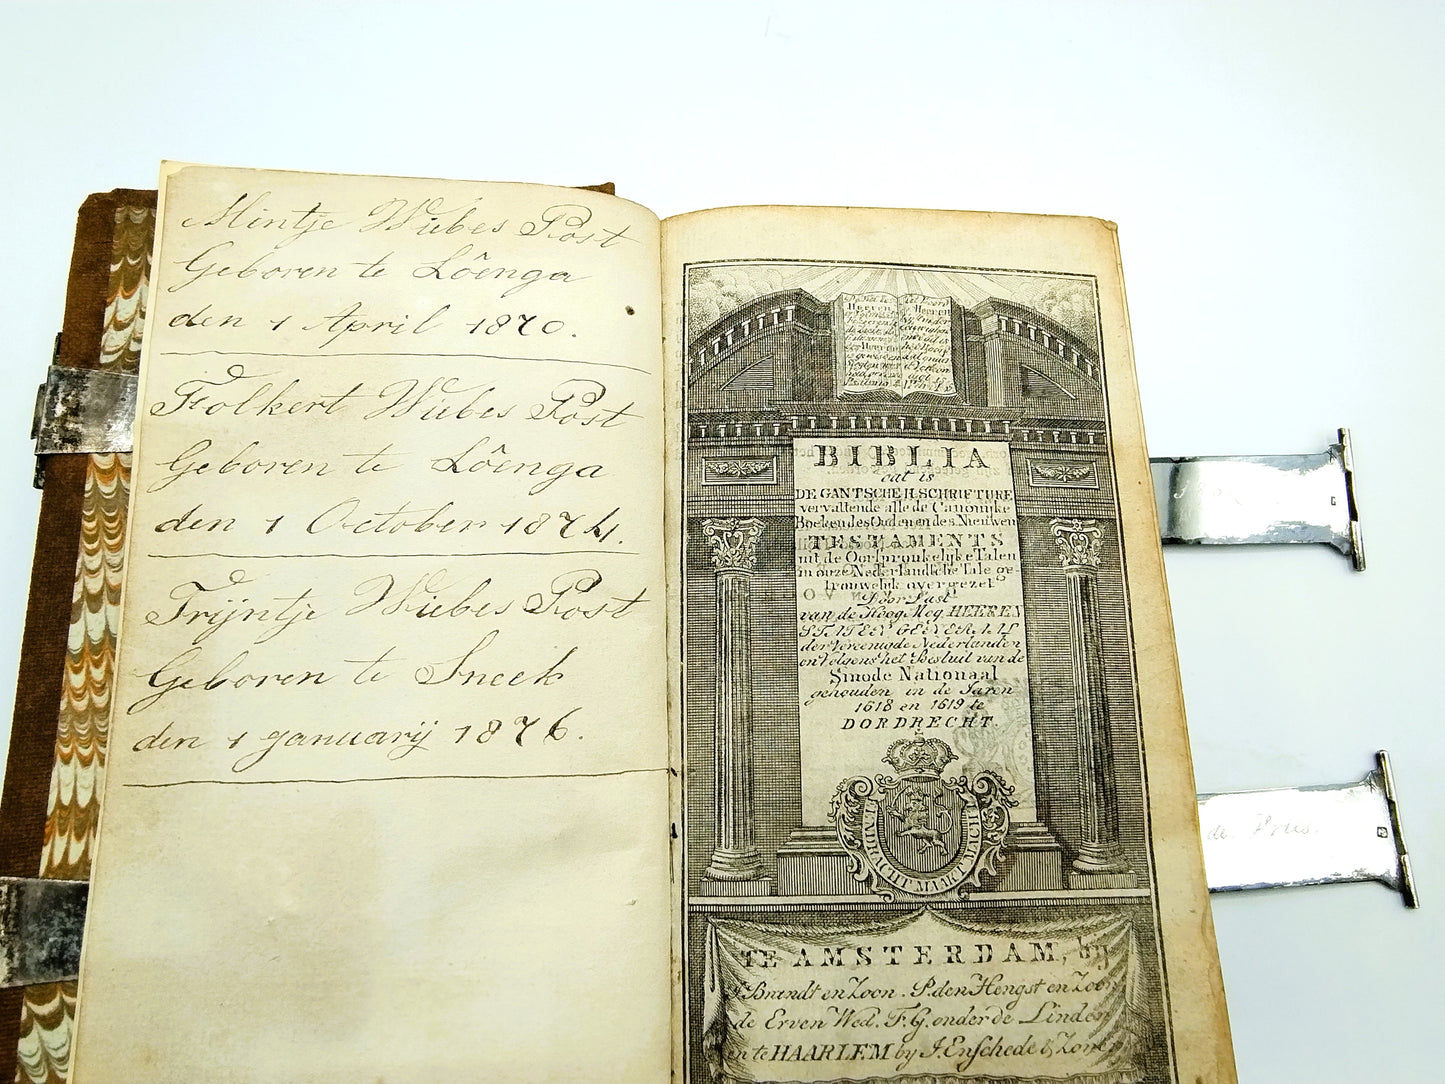 Mintje Wiebes Post
Geboren te Lôenga
den 1 April 1870.
Folkert Wiebes Post
Geboren te Lôenga
den 1 October 1874.
Trijntje Wiebes Post
Geboren te Sneek
den 1 januarij 1876.
BIBLIA
dat is
DE GANTSCHE H. SCHRIFTURE
vervattende alle de Canonijke
Boeken des Ouden en des Nieuwen
TESTAMENTS
uit de Oorspronkelijke Talen
in onze Nederlandsche Tale ge-
trouwelijk overgezet
Door Last
van de Hoog. Mog. HEEREN
STATEN GENERAAL
der Vereenigde Nederlanden
en volgens het Besluit van de
Sinode Nationaal
gehouden in de Jaren
1618 en 1619 te
DORDRECHT.
EENDRACHT MAAKT MACHT
TE AMSTERDAM, bij
J. Brandt en Zoon. P. den Hengst en Zoon
de Erven Wed. F. G. onder de Linden
en te HAARLEM by J. Enschede & Zonen
de Vries.